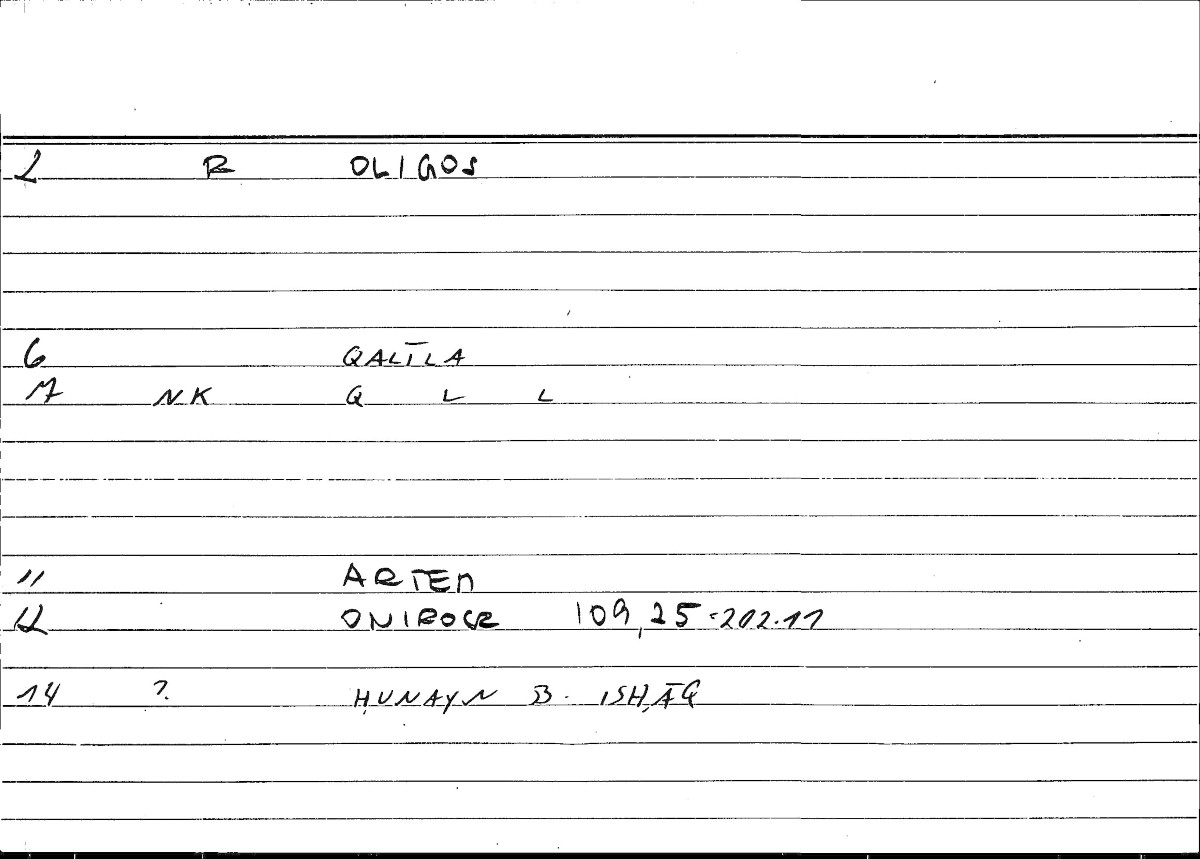 2 R OLIGOS
6 QALĪLA
7 NK Q L L
11 ARTEM
12 ONIROCR 109,25 = 202.11
14 ? ḤUNAYN B. ISḤĀQ